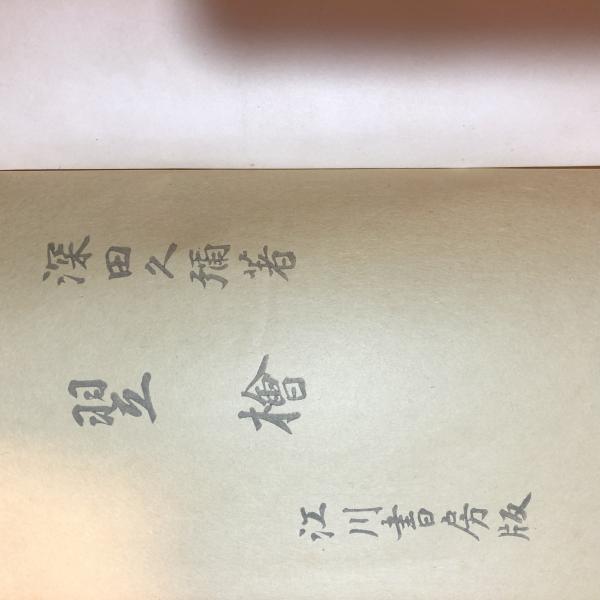 深田久彌著
翌檜
江川書房版